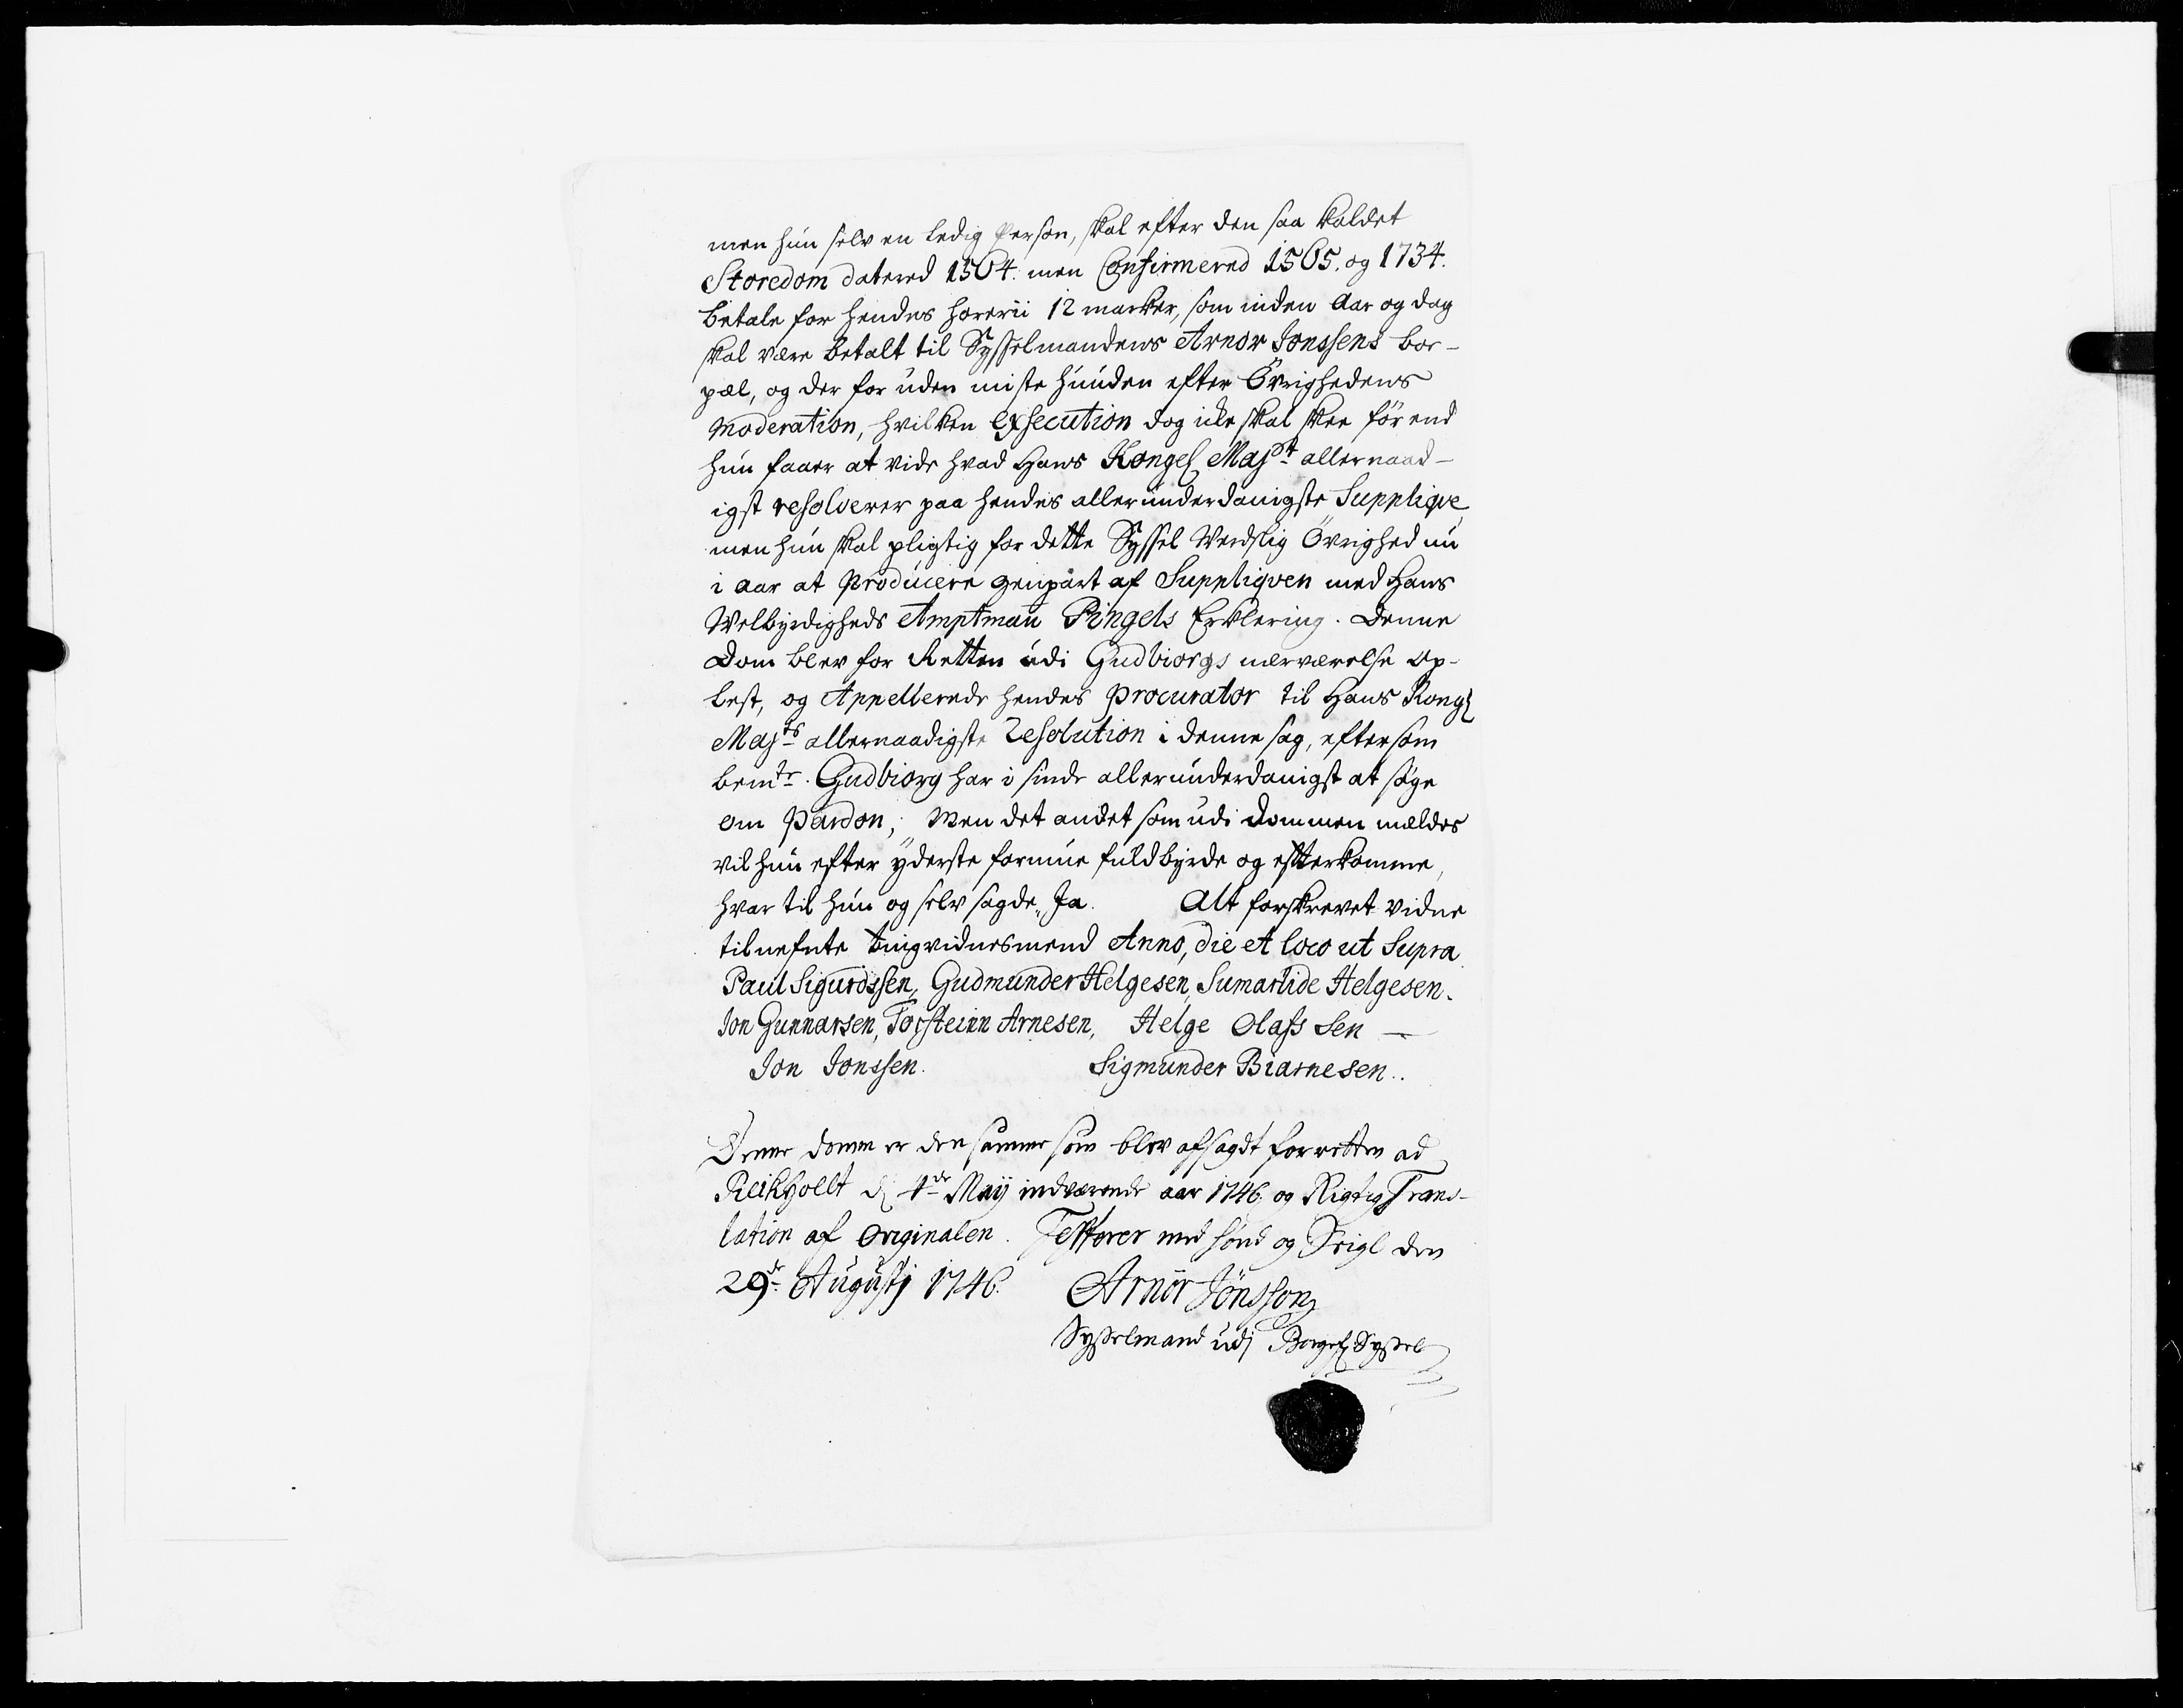 men hun selv en ledig Person, skal efter den saa kaldet
Storedom datered 1564. men Confirmered 1565. og 1734.
betale for hendes horerii 12 marker, som inden Aar og dag
skal være betalt til Sysselmandens Arnor Jonssens boe-
pæl, og der for uden miste huuden efter Övrighedens
Moderation, hvilken Exsecution dog icke skal skee för end
hun faaer at vide hvad Hans Kongel Majst allernaad-
igst resolverer paa hendes allerunderdanigste Suppliqve,
men hun skal pligtig for dette Syssel Verdslig Övrighed nu
i aar at producere genpart af Suppliqven med Hans
Welbyrdigheds Amptmañ Pingels Erklering. Denne
Dom blev for Retten udi Gudbiorgs nærværelse op-
lest, og Appellerede hendes procurator til Hans Kongl
Majts allernaadigste Resolution i denne sag, eftersom
bemte. Gudbiorg har i sinde allerunderdanigst at söge
om Pardon; Men det andet som udi Dommen meldes
vil hun efter yderste formue fuldbyrde og efterkomme,
hvar til hun og selv sagde Ja. Alt forskrevet vidne
tilnefnte tingvidnesmend Anno, die et loco ut Supra
Paul Sigurdssen, Gudmunder Helgesen, Sumarlide Helgesen.
Jon Gunnarsen, Torsteinn Arnesen, Helge Olafssen —
Jon Jonssen. Sigmunder Biarnesen..
Denne domm er den samme som blev afsagdt for retten ad
Reikholt d 4de Maij indværende aar 1746. og Rigtig Trans-
lation af Originalen. Testerer med hönd og Seigl den
29de Augustj 1746. Arnör Jönsson
Sysselmand udi Borgef. Syssel